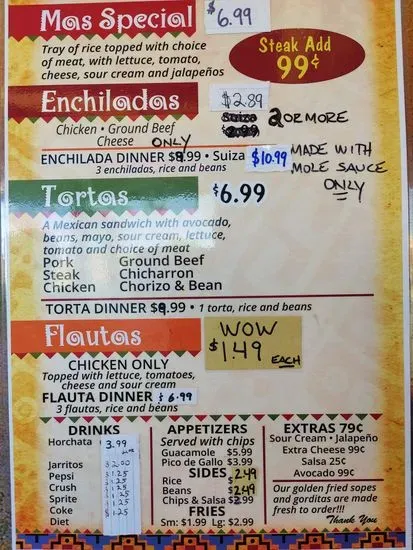 Mas Special $6.99
Tray of rice topped with choice
of meat, with lettuce, tomato,
cheese, sour cream and jalapeños
Steak Add
99¢
Enchiladas $2.89
Suiza 2 OR MORE
Chicken • Ground Beef
Cheese ONLY
ENCHILADA DINNER $9.99 • Suiza $10.99 MADE WITH
MOLE SAUCE
ONLY
3 enchiladas, rice and beans
Tortas $6.99
A Mexican sandwich with avocado,
beans, mayo, sour cream, lettuce,
tomato and choice of meat
Pork Ground Beef
Steak Chicharron
Chicken Chorizo & Bean
TORTA DINNER $9.99 • 1 torta, rice and beans
Flautas WOW
$1.49 EACH
CHICKEN ONLY
Topped with lettuce, tomatoes,
cheese and sour cream
FLAUTA DINNER $6.99
3 flautas, rice and beans
DRINKS
Horchata 3.99
Jarritos $2.00
Pepsi $1.25
Crush $1.25
Sprite $1.25
Coke $1.25
Diet $1.25
APPETIZERS
Served with chips
Guacamole $5.99
Pico de Gallo $3.99
SIDES
Rice $2.49
Beans $2.49
Chips & Salsa $2.99
FRIES
Sm: $1.99 Lg: $2.99
EXTRAS 79¢
Sour Cream • Jalapeño
Extra Cheese 99¢
Salsa 25¢
Avocado 99¢
Our golden fried sopes
and gorditas are made
fresh to order!!!
Thank You